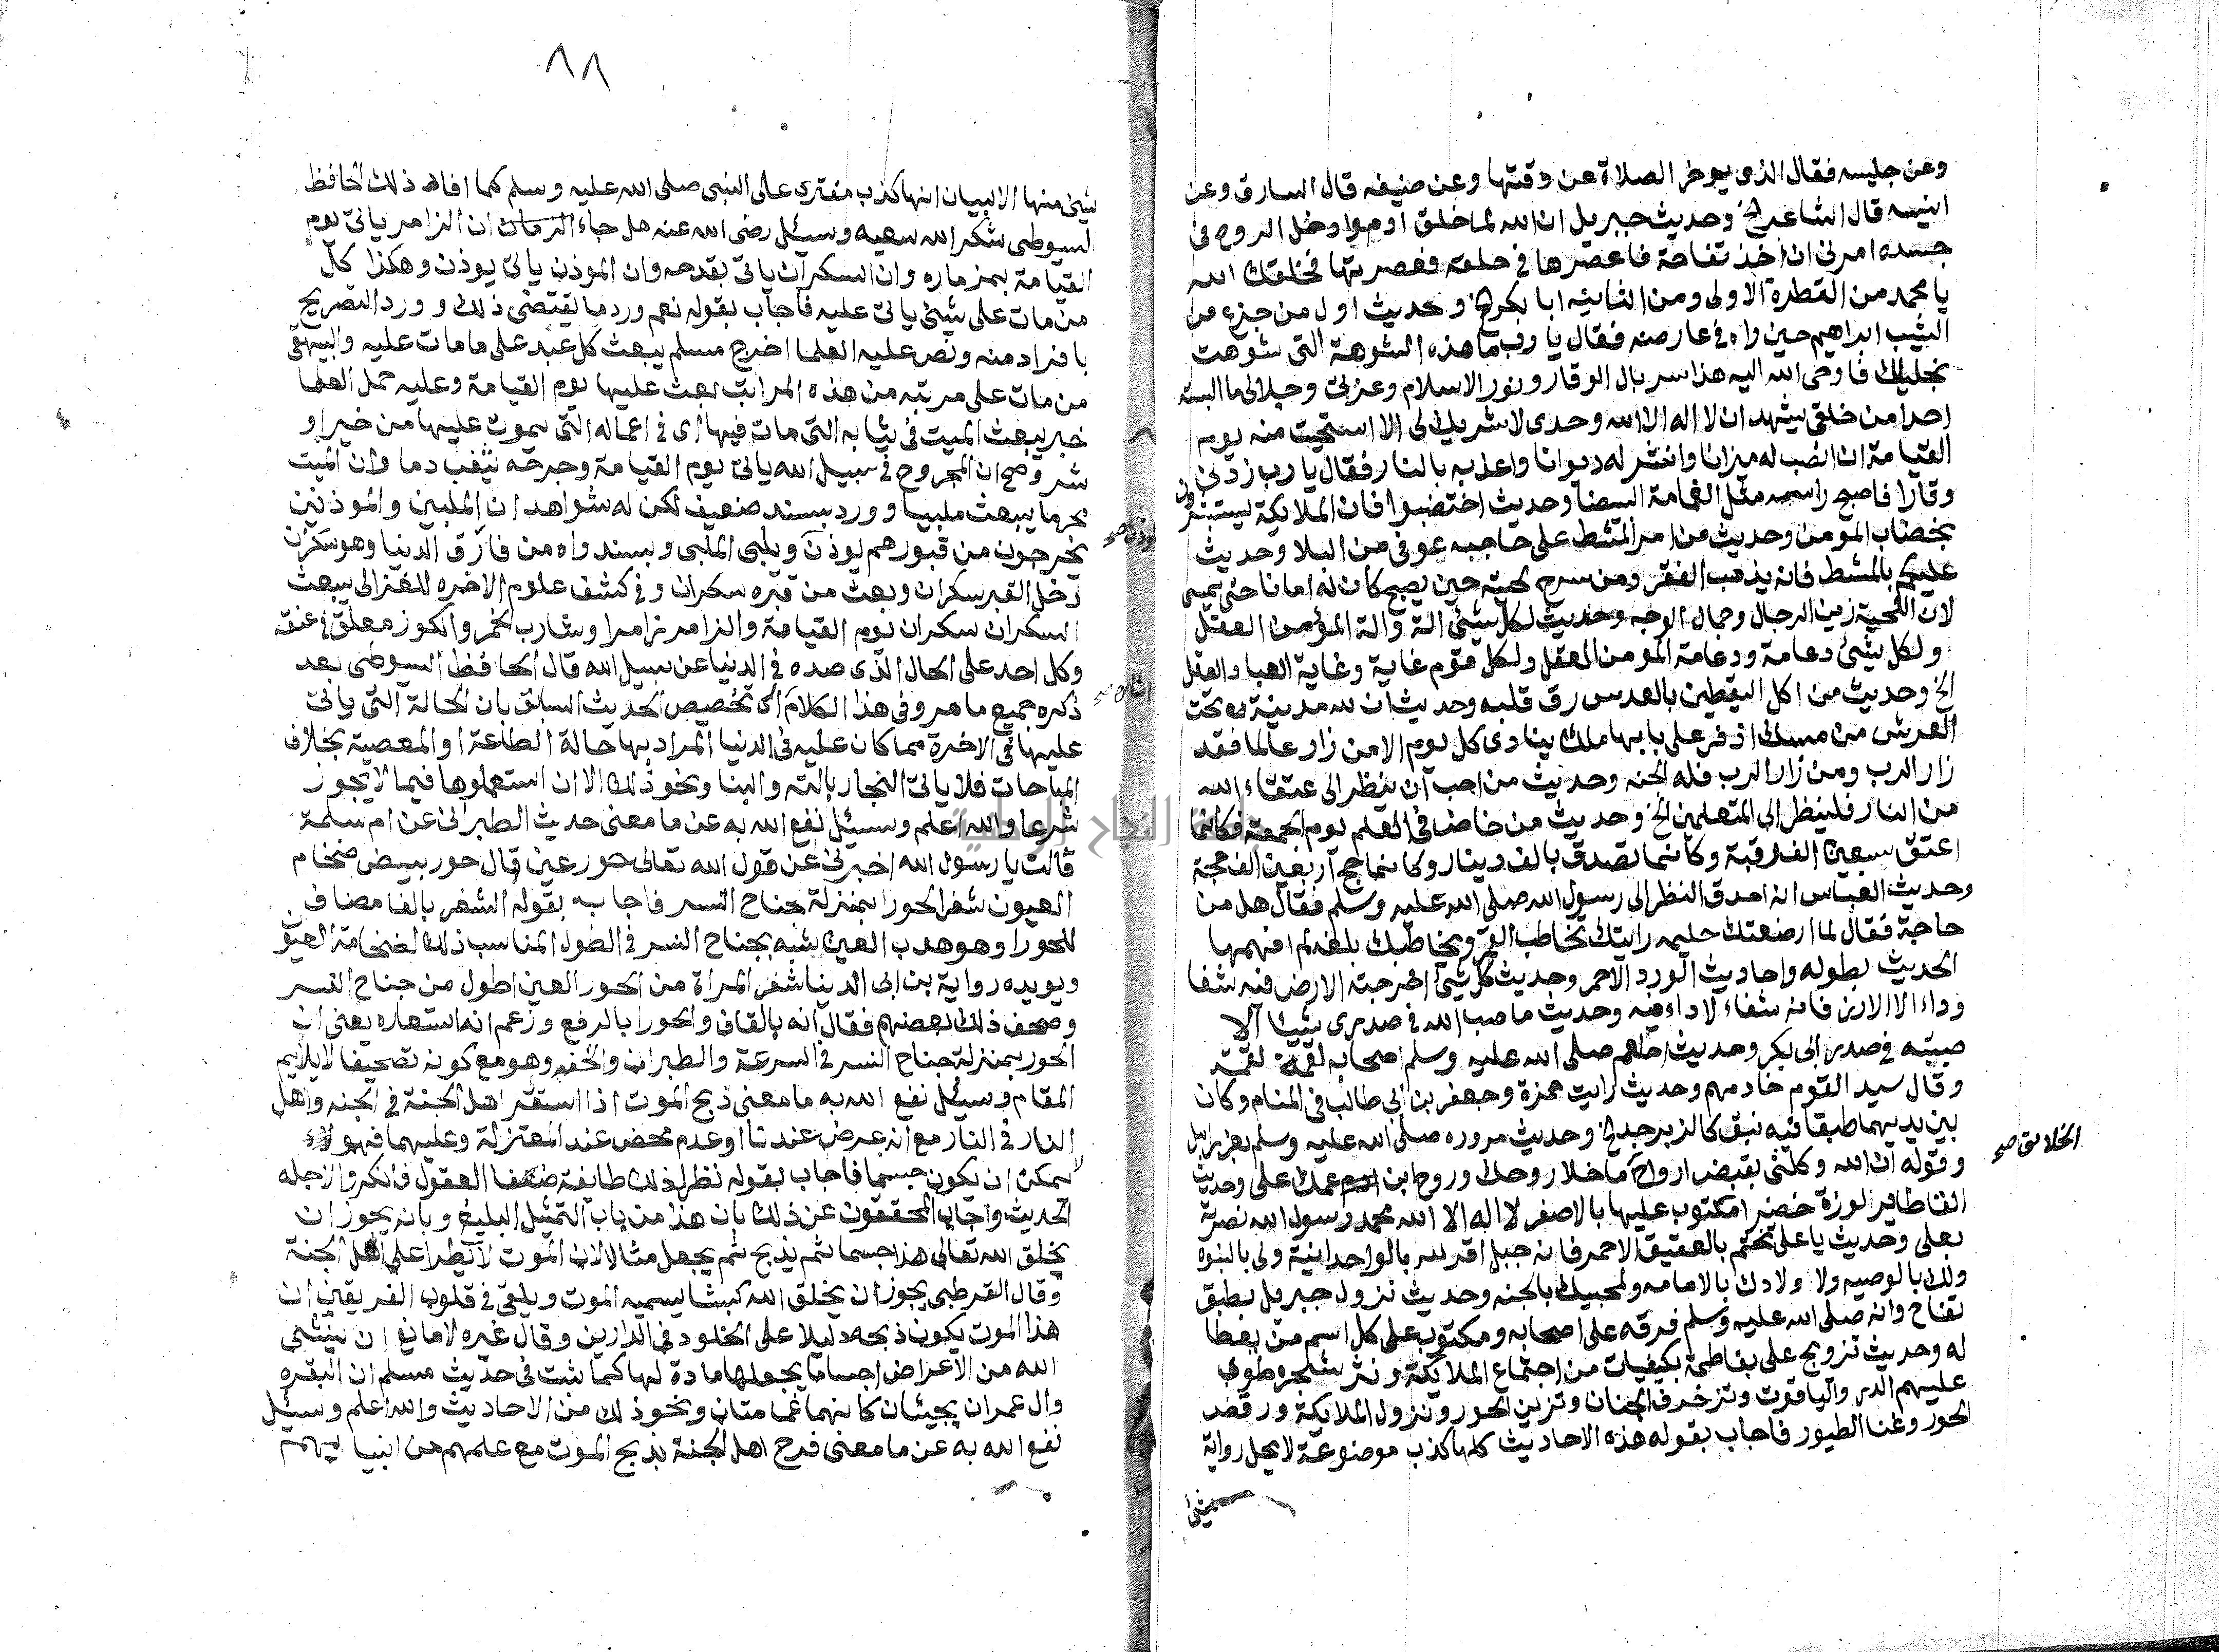 وعن جليسه فقال الذي يوخر الصلاة عن وقتها وعن ضيفه قال السارق وعن
انيسه قال الشاعر الخ وحديث جبريل ان الله لما خلق ادم وادخل الروح في
جسده امرني ان اخذ تفاحة فاعصرها في حلقه فعصرتها فخلقك الله
يا محمد من القطرة الاولى ومن الثانية ابا بكر الخ وحديث اول من جزع من
الشيب ابراهيم حين راه في عارضه فقال يا رب ما هذه الشوهة التي شوهت
بخليلك فاوحى الله اليه هذا سربال الوقار ونور الاسلام وعزتي وجلالي ما البسته
احدا من خلقي يشهد ان لا اله الا الله وحدي لا شريك لي الا استحيت منه يوم
القيامة ان انصب له ميزانا وانشر له ديوانا واعذبه بالنار فقال يا رب زدني
وقارا فاصبح راسه مثل الثغامة البيضا وحديث اختضبوا فان الملايكة يستبشرون
بخضاب المومن وحديث من امر المشط على حاجبه عوفي من البلا وحديث
عليكم بالمشط فانه يذهب الفقر ومن سرح لحيته حين يصبح كان له امانا حتى يمسي
لان اللحية زين الرجال وجمال الوجه وحديث لكل شيئ الة والة المؤمن العقل
ولكل شيئ دعامة ودعامة المومن العقل ولكل قوم غاية وغاية العباد العقل
الخ وحديث من اكل اليقطين بالعدس رق قلبه وحديث ان لله مدينة تحت
العرش من مسك اذفر على بابها ملك ينادي كل يوم الا من زار عالما فقد
زار الرب ومن زار الرب فله الجنه وحديث من احب ان ينظر الى عتقاء الله
من النار فلينظر الى المتعلمين الخ وحديث من خاض في العلم يوم الجمعة فكانما
اعتق سبعين الف رقبة وكانما تصدق بالف دينار وكانما حج اربعين الف حجة
وحديث العباس انه احدق النظر الى رسول الله صلى الله عليه وسلم فقال هل من
حاجة فقال لما ارضعتك حليمه رايتك تخاطب القمر ويخاطبك بلغة لم افهمها
الحديث بطوله واحاديث الورد الاحمر وحديث كل شيئ اخرجته الارض فيه شفا
وداء الا الارز فانه شفاء لا داء فيه وحديث ما صب الله في صدري شيئا الا
صببته في صدر ابي بكر وحديث صلى الله عليه وسلم اصحابه لقمة لقمة
وقال سيد القوم خادمهم وحديث رايت حمزة وجعفر بن ابي طالب في المنام وكان
بين يديهما طبقا فيه نبق كالزبرجد الخ وحديث مروره صلى الله عليه وسلم بعزرايل
وقوله ان الله وكلني بقبض ارواح ما خلا روحك وروح ابن عمك علي وحديث
الخلايق صح
القا طاير لوزة خضرا مكتوب عليها بالاصفر لا اله الا الله محمد رسول الله نصرته
بعلي وحديث يا علي تختم بالعقيق الاحمر فانه جبل اقر لله بالواحدانية ولي بالنبوه
ولك بالوصيه ولاولادك بالامامه ولمحبيك بالجنه وحديث نزول جبريل بطبق
تفاح وانه صلى الله عليه وسلم فرقه على اصحابه ومكتوب على كل اسم من يعطا
له وحديث تزويج علي بفاطمة بكيفيات من اجتماع الملايكة ونثر شجر طوبى
عليهم الدر والياقوت وتزخرف الجنان وتزين الحور ونزول الملايكة ورقص
الحور وغنا الطيور فاجاب بقوله هذه الاحاديث كلها كذب موضوعة لا يحل رواية
شيئ
٨٨
شيئ منها الا لبيان انها كذب مفترى على النبي صلى الله عليه وسلم كما افاد ذلك الحافظ
السيوطي شكر الله سعيه وسئل رضي الله عنه هل جاء ان الزامر ياتي يوم
القيامة بمزماره وان السكران ياتي بقدحه وان الموذن ياتي يوذن وهكذا كل
من مات على شيئ ياتي عليه فاجاب بقوله نعم ورد ما يقتضي ذلك وورد التصريح
بافراد منه ونص عليه العلما اخرج مسلم يبعث كل عبد على ما مات عليه والبيهقي
من مات على مرتبه من هذه المراتب بعث عليها يوم القيامة وعليه حمل العلما
خبر يبعث الميت في ثيابه التي مات فيها اي في اعماله التي يموت عليها من خير او
شر وصح ان المجروح في سبيل الله ياتي يوم القيامة وجرحه يثغب دما وان الميت
محرما يبعث ملبيا وورد بسند ضعيف لكن له شواهد ان الملبين والموذنين
يخرجون من قبورهم يوذن ويلبي الملبي وبسند واه من فارق الدنيا وهو سكران
الموذن صح
دخل القبر سكران وبعث من قبره سكران وفي كشف علوم الاخره للغزالي يبعث
السكران سكران يوم القيامة والزامر زامرا وشارب الخمر والكوز معلق في عنقه
وكل احد على الحال الذي صده في الدنيا عن سبيل الله قال الحافظ السيوطي بعد
ذكره جميع ما مر وفي هذا الكلام الى تخصيص الحديث السابق بان الحالة التي ياتي
اشارة صح
عليها في الاخرة مما كان عليه في الدنيا المراد بها حالة الطاعة او المعصية بخلاف
المباحات فلا ياتي النجار بالته والبنا ونحو ذلك الا ان استعملوها فيما لا يجوز
شرعا والله اعلم وسئل نفع الله به عن ما معنى حديث الطبراني عن ام سلمة
قالت يا رسول الله اخبرني عن قول الله تعالى حور عين قال حور بيض ضخام
العيون شفر الحورا بمنزلة جناح النسر فاجاب بقوله الشفر بالفا مضاف
للحورا وهو هدب العين شبه بجناح النسر في الطول المناسب ذلك لضخامة العيون
ويويده رواية بن ابي الدنيا شفر المراة من الحور العين اطول من جناح النسر
وصحف ذلك بعضهم فقال انه بالقاف والحورا بالرفع وزعم انه استعاره يعني ان
الحور بمنزلة جناح النسر في السرعة والطيران والخفه وهو مع كونه تصحيفا لا يلايم
المقام وسيئل نفع الله به ما معنى ذبح الموت اذا استقر اهل الجنة في الجنه واهل
النار في النار مع انه عرض عندنا او عدم محض عند المعتزلة وعليهما فهو لا
يمكن ان يكون جسما فاجاب بقوله نظر لذلك طايفة ضعفا العقول فانكروا لاجله
الحديث واجاب المحققون عن ذلك بان هذا من باب التمثيل البليغ وبانه يجوز ان
يخلق الله تعالى هذا جسما ثم يذبح ثم يجعل مثالا لان الموت لا يطرا على اهل الجنة
وقال القرطبي يجوز ان يخلق الله كبشا يسميه الموت ويلقي في قلوب الفريقين ان
هذا الموت يكون ذبحه دليلا على الخلود في الدارين وقال غيره لا مانع ان ينشئ
الله من الاعراض اجساما يجعلها مادة لها كما ثبت في حديث مسلم ان البقره
وال عمران يجيئان كانهما غمامتان ونحو ذلك من الاحاديث والله اعلم وسئل
نفع الله به عن ما معنى فرح اهل الجنة بذبح الموت مع علمهم من انبيايهم